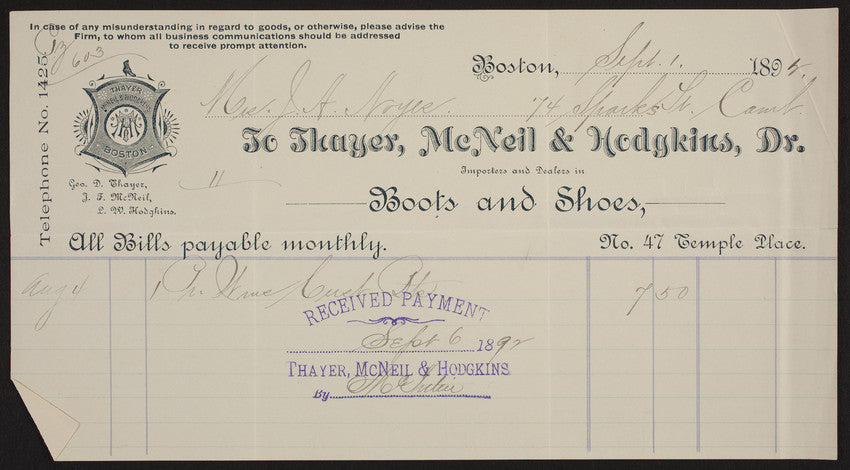 In case of any misunderstanding in regard to goods, or otherwise, please advise the
Firm, to whom all business communications should be addressed
to receive prompt attention.
603
Telephone No. 1425.
THAYER
BOSTON
Geo. D. Thayer,
J. F. McNeil,
L. W. Hodgkins.
Boston, Sept. 1. 189
Mrs. J. A. Noyes. 74 Sparks St. Camb.
To Thayer, McNeil & Hodgkins, Dr.
Importers and Dealers in
Boots and Shoes,
All Bills payable monthly. No. 47 Temple Place.
Aug 4 1 Pr. Wms Cust Bts 7 50
RECEIVED PAYMENT
Sept 6 1892
THAYER, MCNEIL & HODGKINS
By